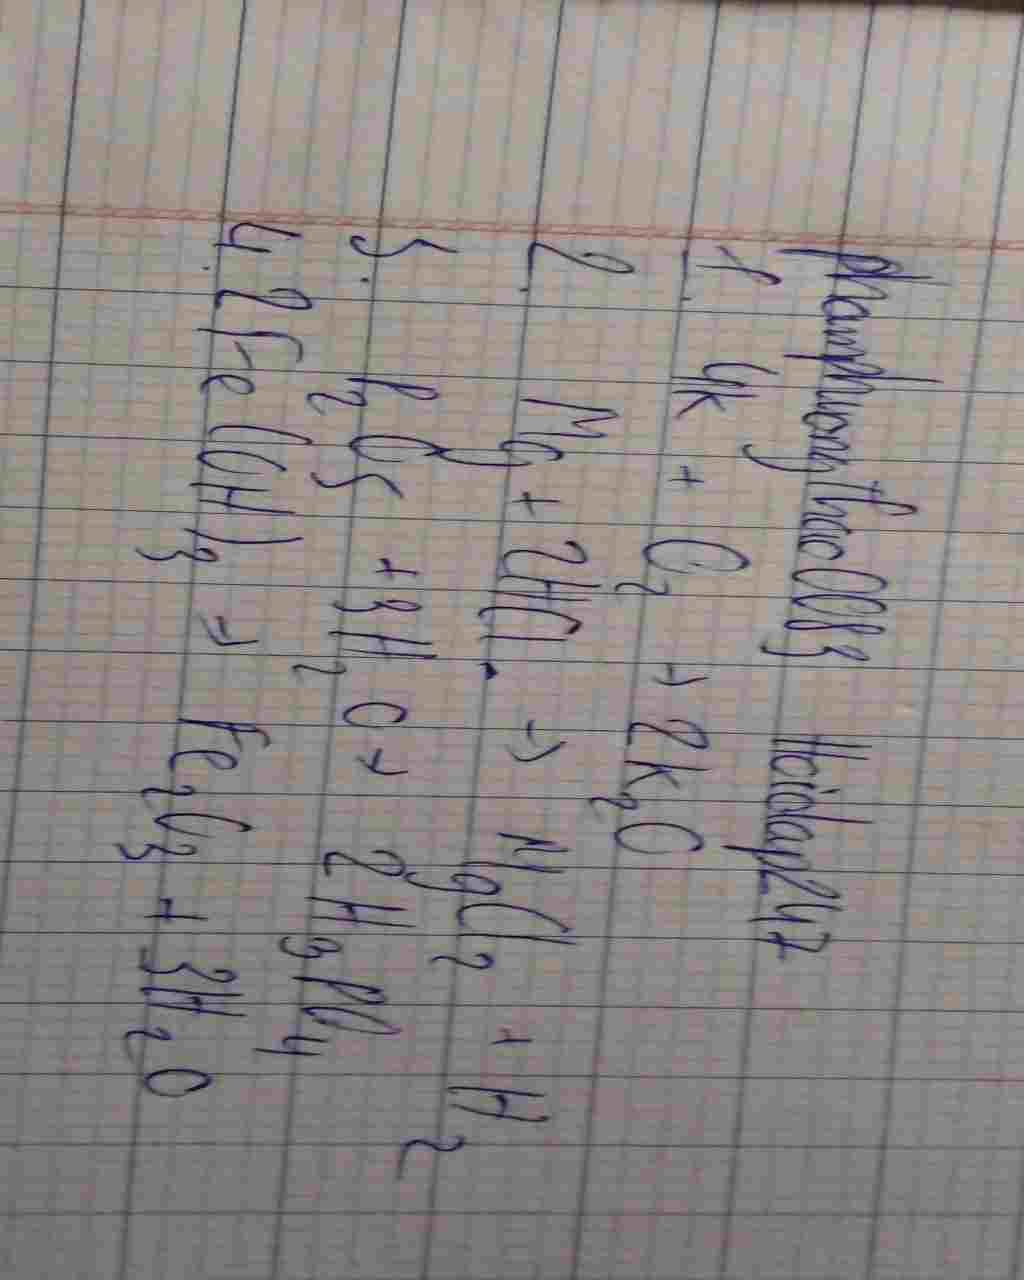 phamphuongthao0083 Hoidap247
1. 4k + O2 → 2k2O
2. Mg + 2HCl. → MgCl2 + H2
3. P2O5 + 3H2O → 2H3PO4
4. 2Fe(OH)3 → Fe2O3 + 3H2O